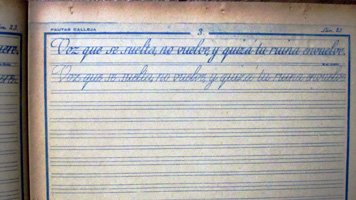 PAUTAS CALLEJA
3
Voz que se suelta, no vuelve, y quizá tu ruina envuelve.
Voz que se suelta, no vuelve, y quizá tu ruina envuelve.